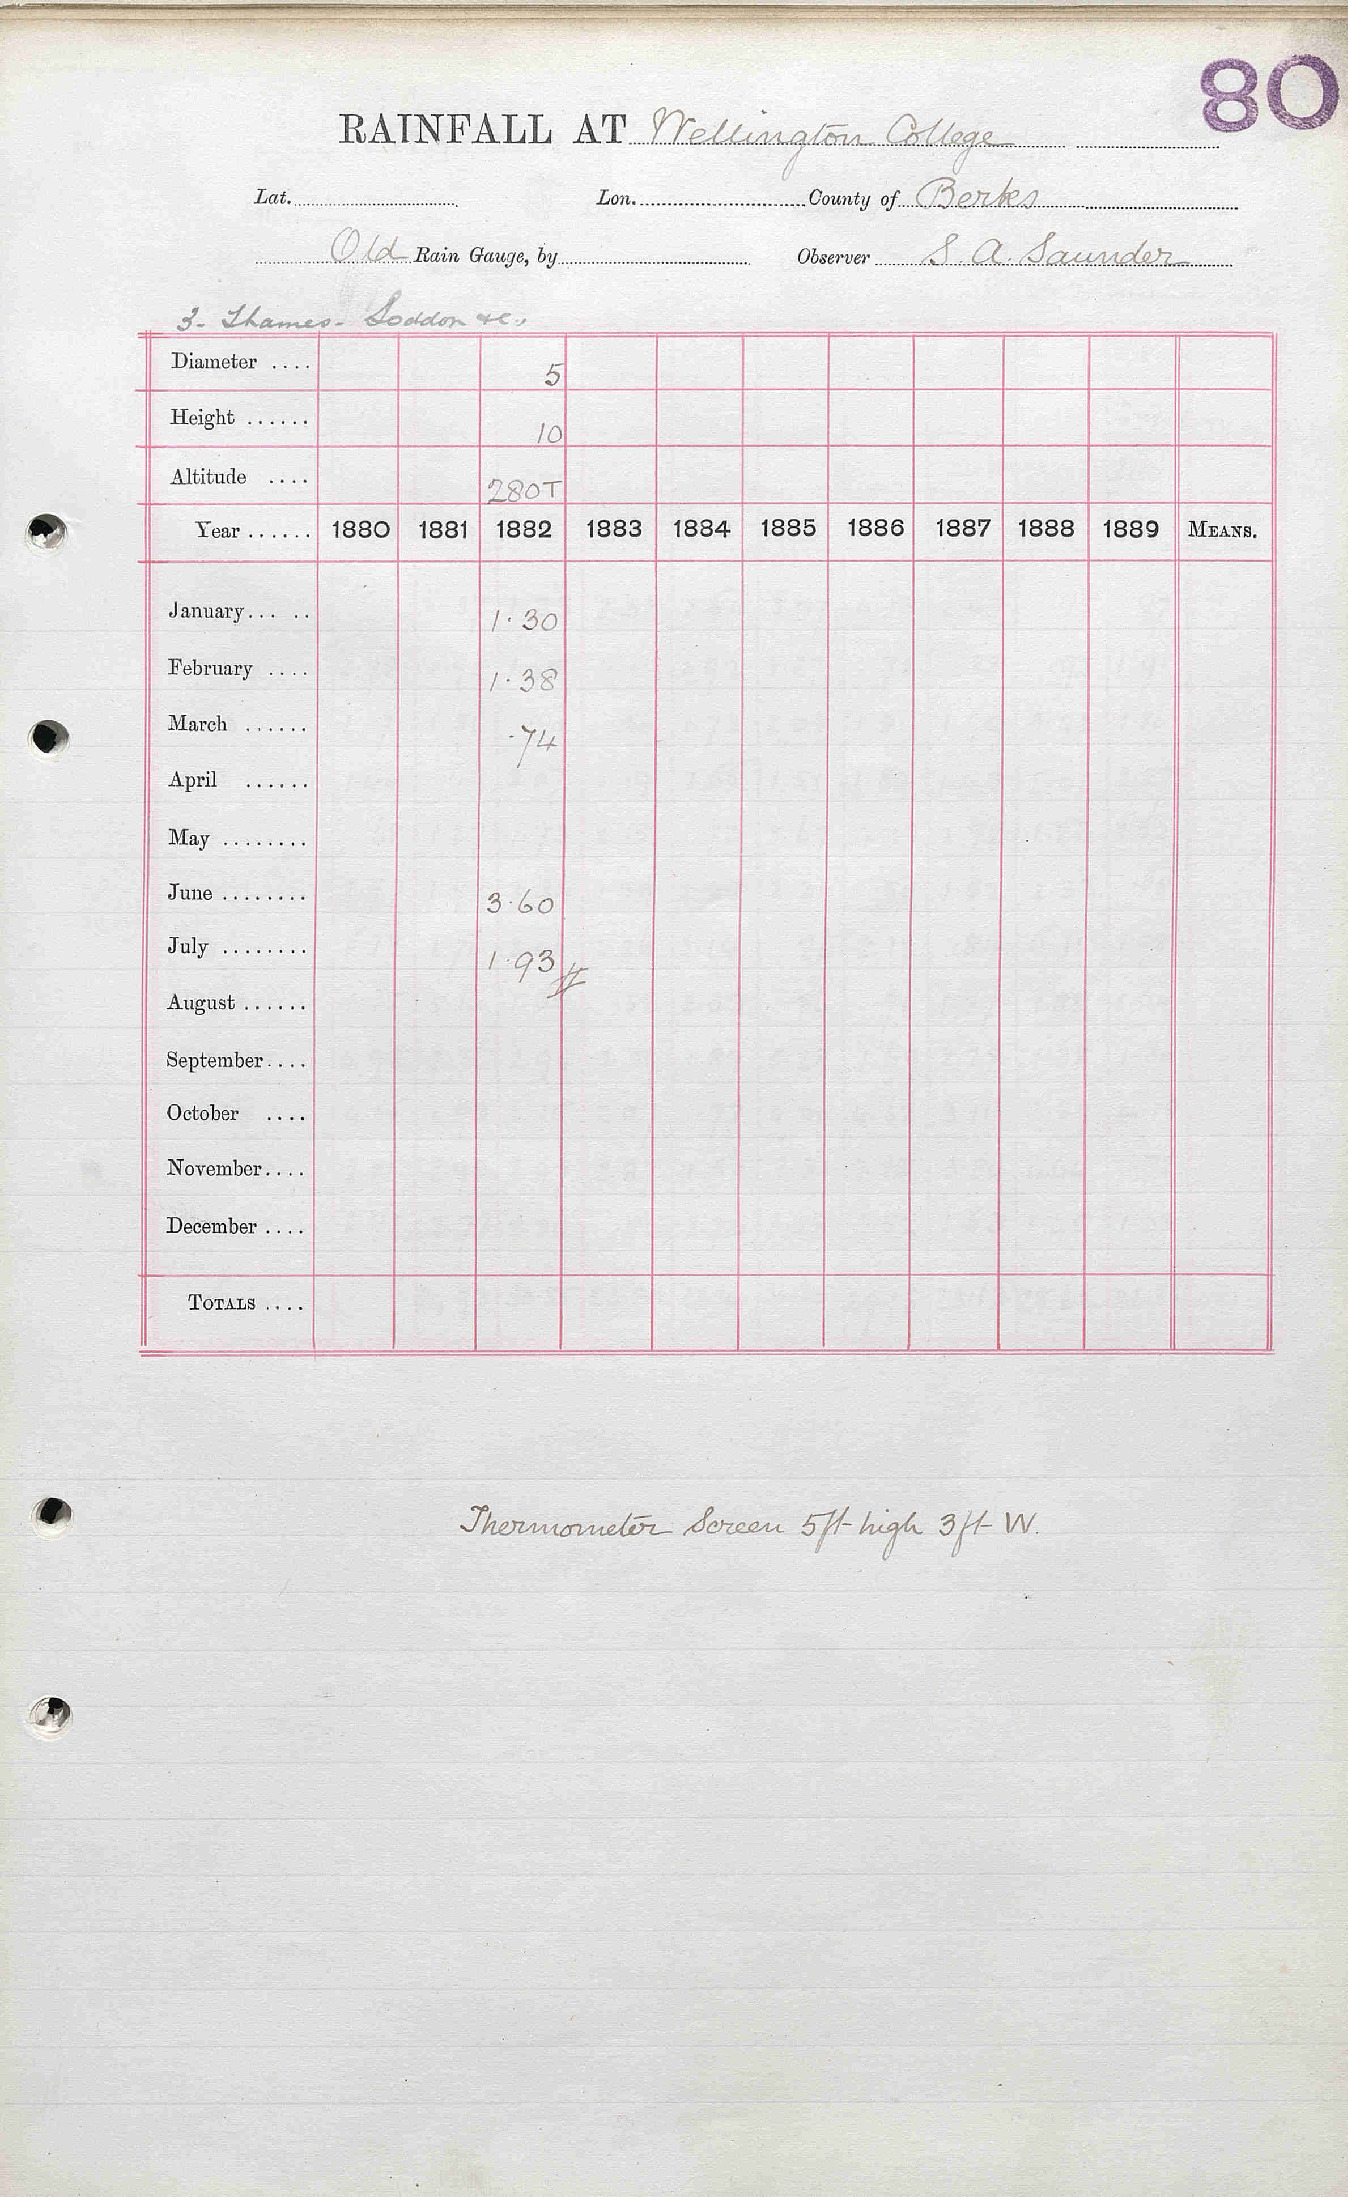 80
RAINFALL AT Wellington College
Lat. Lon. County of Berks
Old Rain Gauge, by Observer S. A. Saunder
3. Thames - Loddon &c.
Diameter .... 5
Height ...... 10
Altitude .... 280T
Year ...... 1880 1881 1882 1883 1884 1885 1886 1887 1888 1889 MEANS.
January ... .. 1.30
February .... 1.38
March ...... .74
April ......
May ........
June ........ 3.60
July ........ 1.93
August ......
September ....
October ....
November ....
December ....
TOTALS ....
Thermometer Screen 5ft high 3ft W.